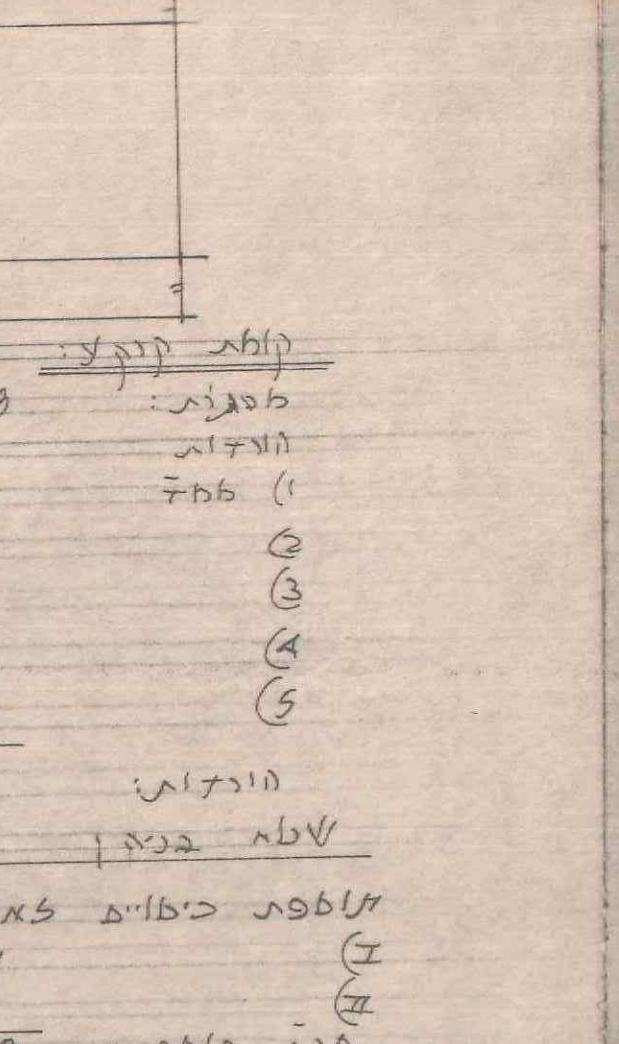 קומת קרקע:
מכגות:
הורדות
1) ממד
2)
3)
4)
5)
הורדות:
שטח בניה
תוספת כיסויים
I)
II)